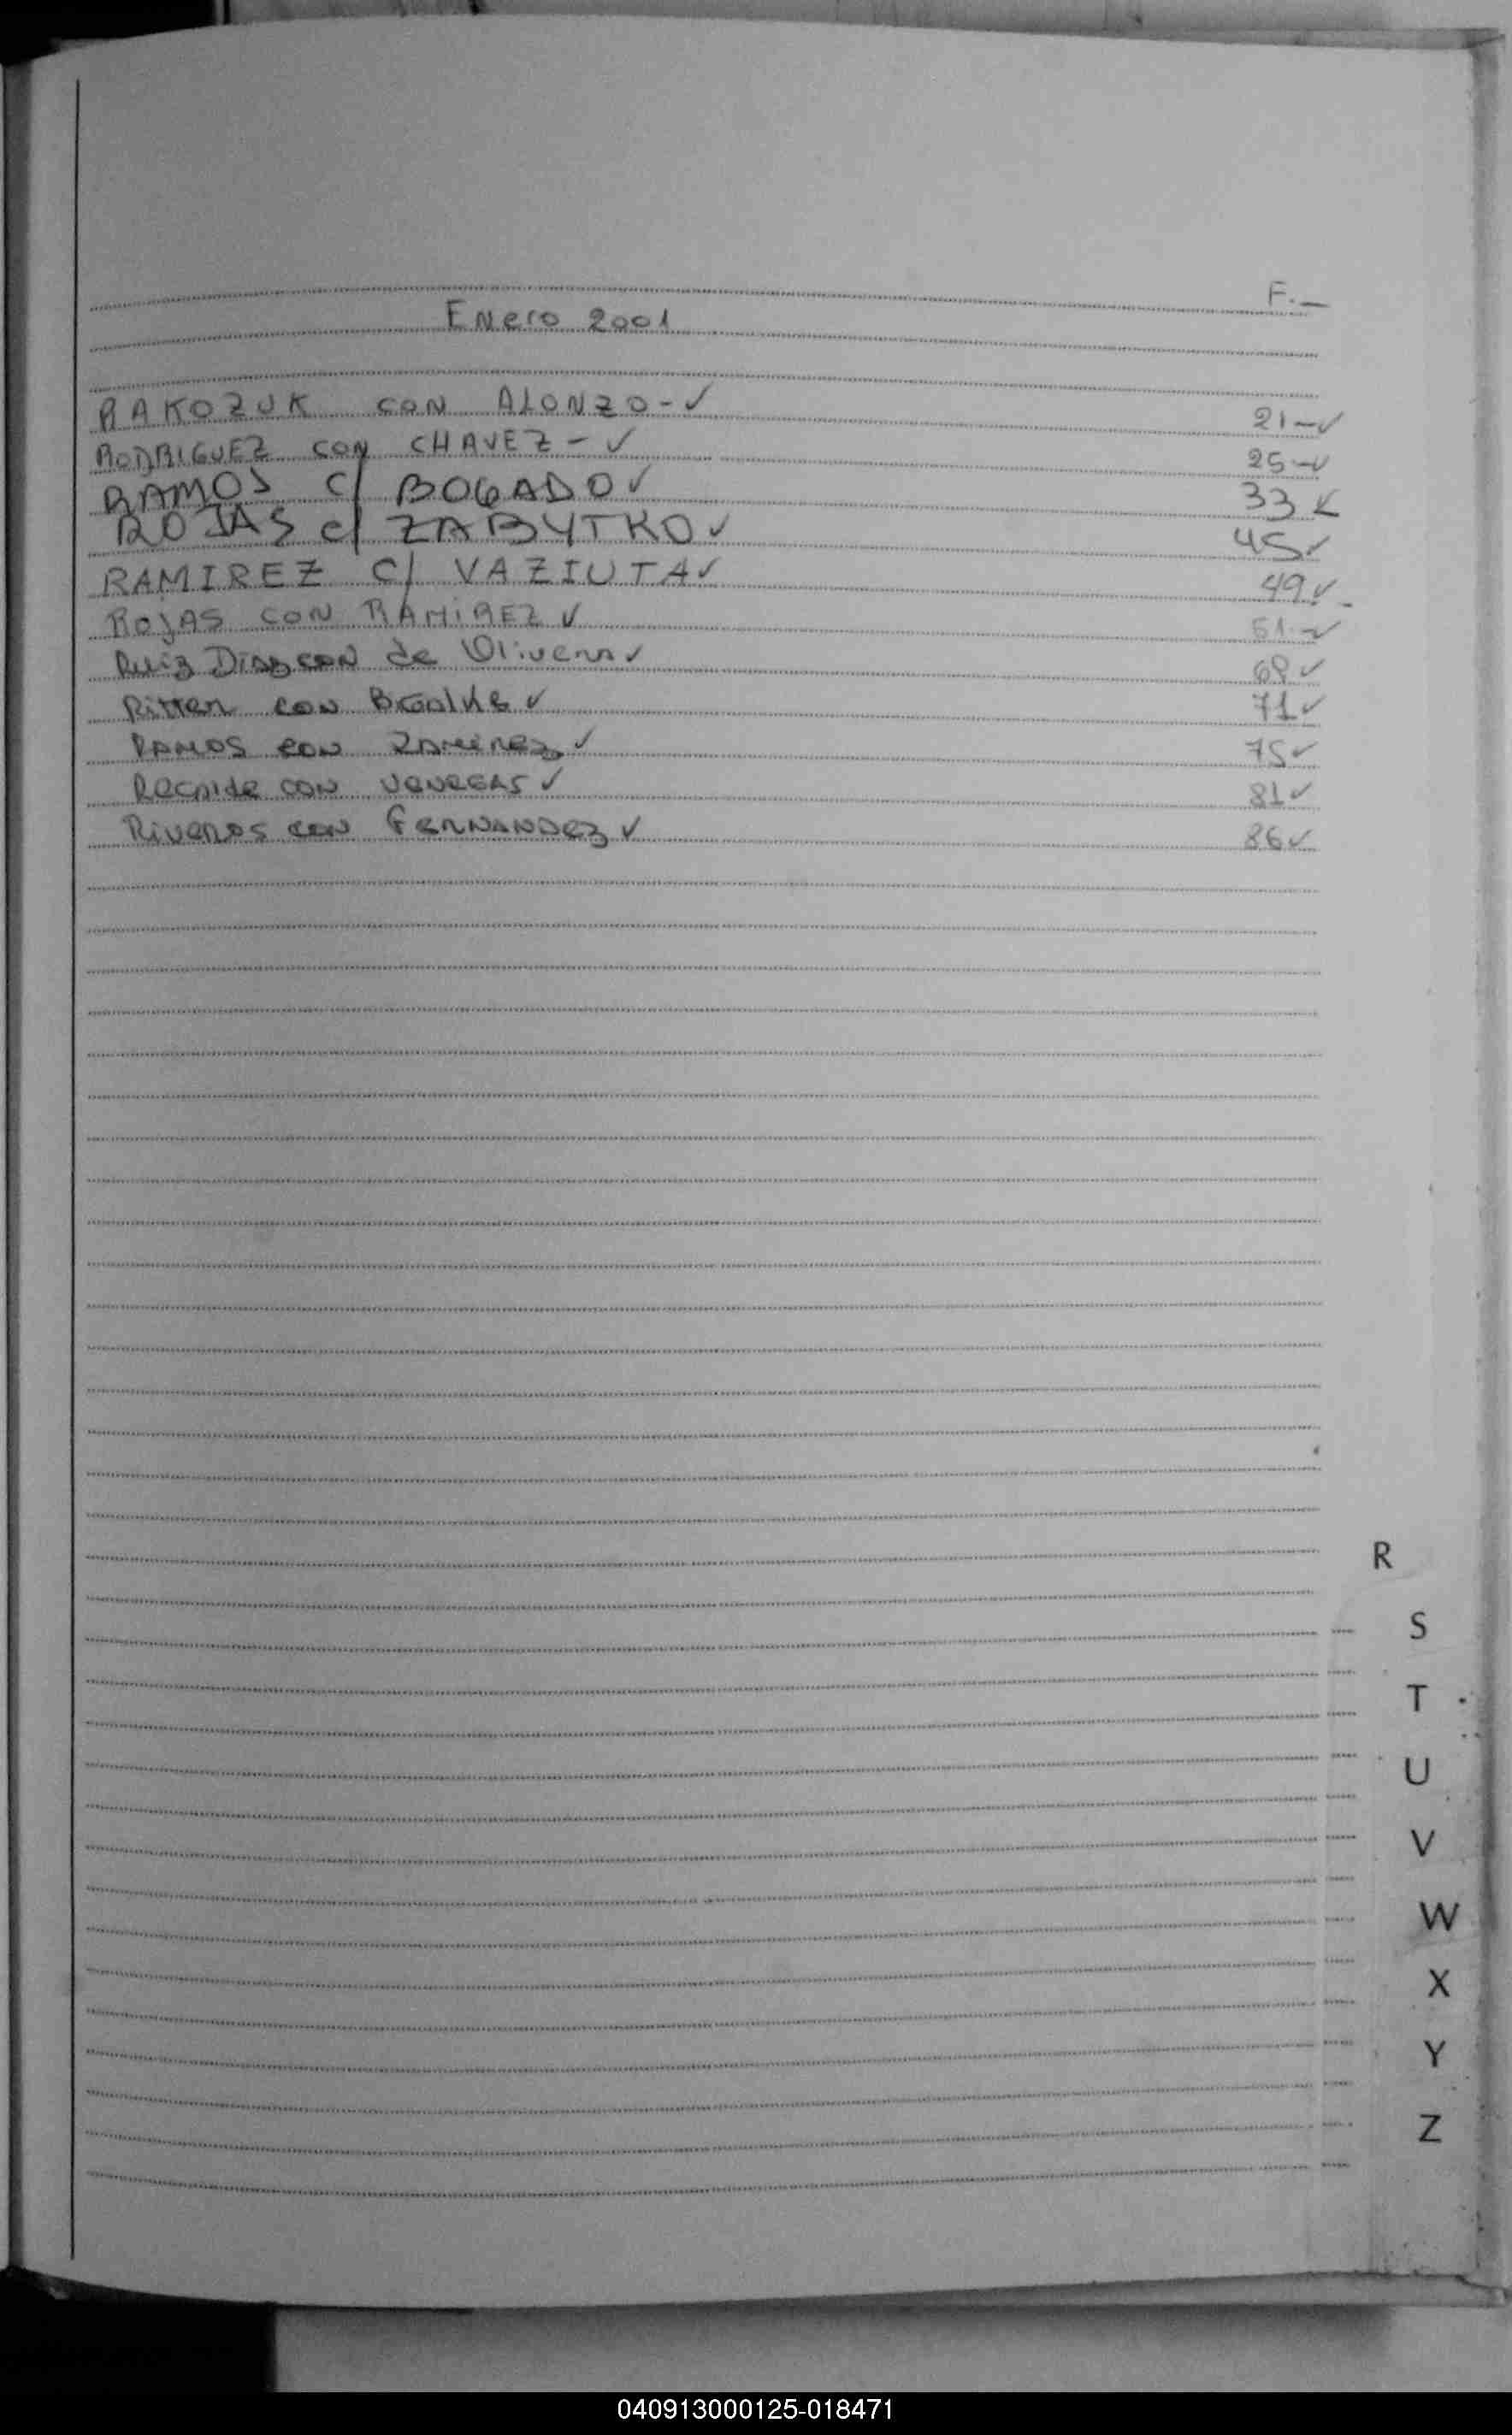 F.—
Enero 2001
RAKOZUK CON ALONZO-✓ 21-✓
RODRIGUEZ CON CHAVEZ-✓ 25-✓
RAMOS C/ BOGADO✓ 33✓
ROJAS c/ ZABYTKO✓ 45✓
RAMIREZ C/ VAZIUTA✓ 49✓-
ROJAS CON RAMIREZ✓ 51-✓
Ruiz Diaz con de Olivera✓ 68✓
Ritter con ✓ 71✓
RAMOS CON ✓ 75✓
Recalde con VENEGAS✓ 81✓
Riveros con FERNANDEZ✓ 86✓
R
S
T
U
V
W
X
Y
Z
040913000125-018471